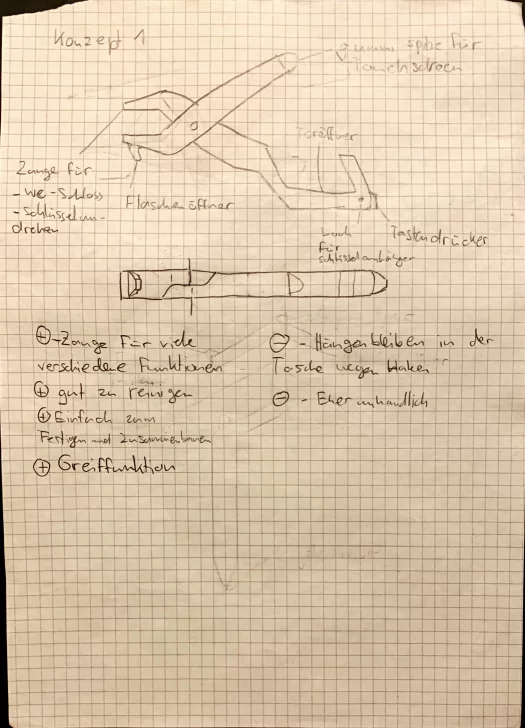 Konzept 1
gummi spitze für
Touchscreen
Türöffner
Zange für
- WC-Schloss
- Schlüsselum-
drehen
Flaschenöffner
Loch
für
Schlüsselanhänger
Tastendrücker
⊕ -Zange für viele
verschiedene Funktionen
⊕ gut zu reinigen
⊕ Einfach zum
Fertigen und zusammenbauen
⊕ Greiffunktion
⊖ - Hängenbleiben in der
Tasche wegen Haken
⊖ - Eher unhandlich